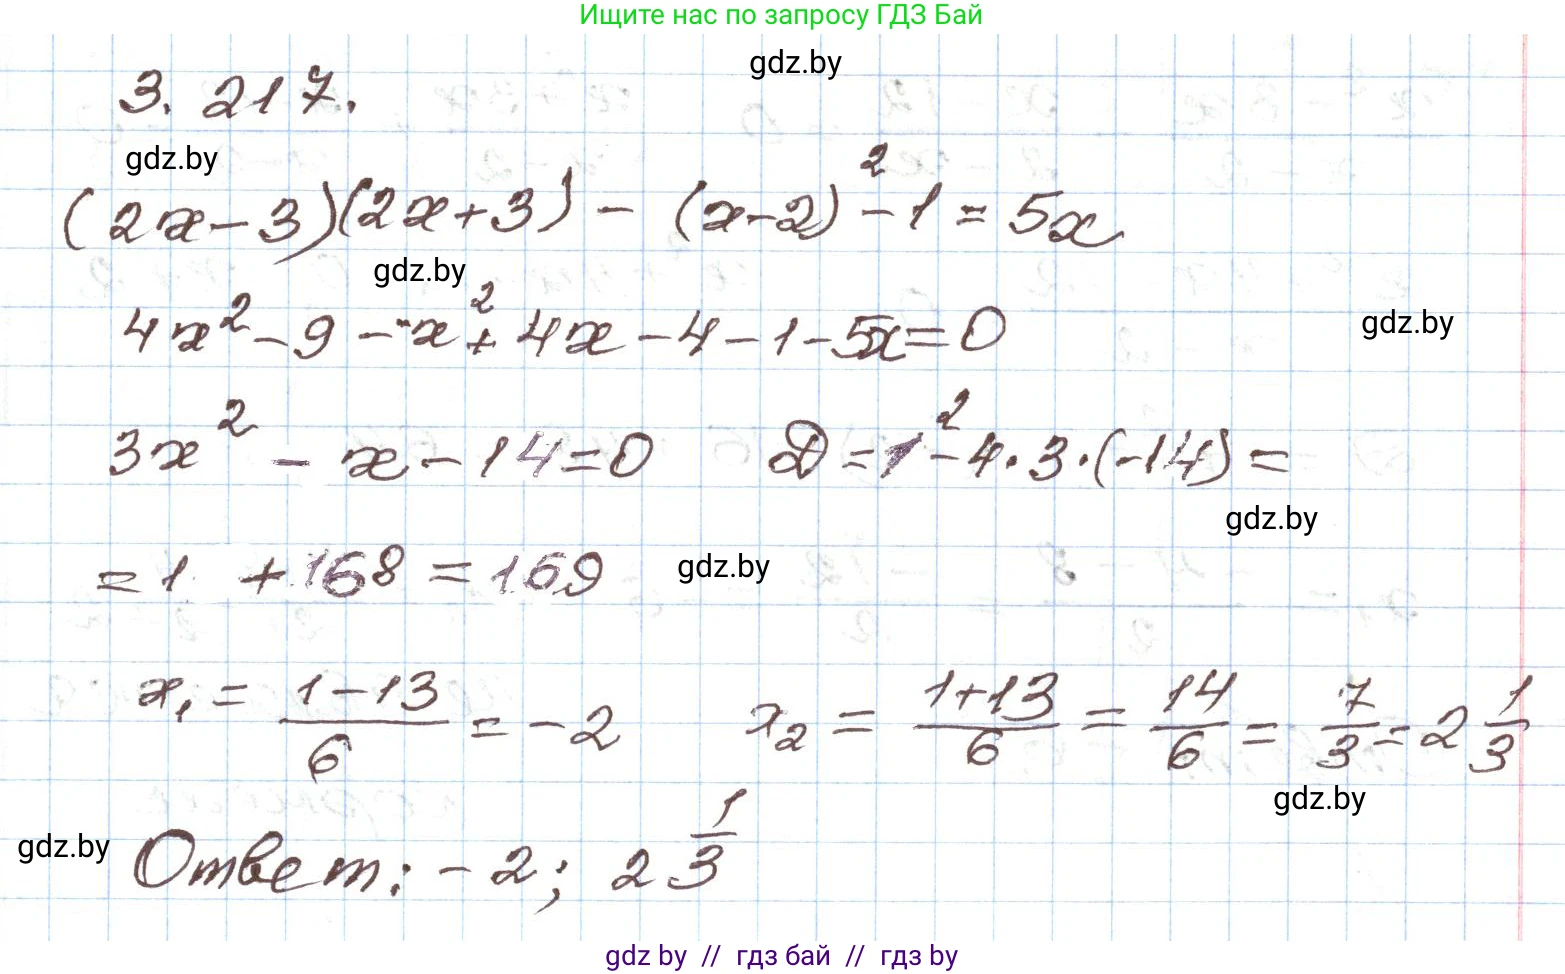 Ищите нас по запросу ГДЗ Бай
gdz.by
3. 217.
gdz.by
(2x-3)(2x+3) - (x-2)² - 1 = 5x
gdz.by
4x² - 9 - x² + 4x - 4 - 1 - 5x = 0
gdz.by
3x² - x - 14 = 0 D = 1² - 4·3·(-14) =
gdz.by
= 1 + 168 = 169
gdz.by
x₁ = (1-13)/6 = -2 x₂ = (1+13)/6 = 14/6 = 7/3 = 2 1/3
gdz.by
gdz.by
Ответ: -2; 2 1/3
gdz by // гдз бай // гдз by